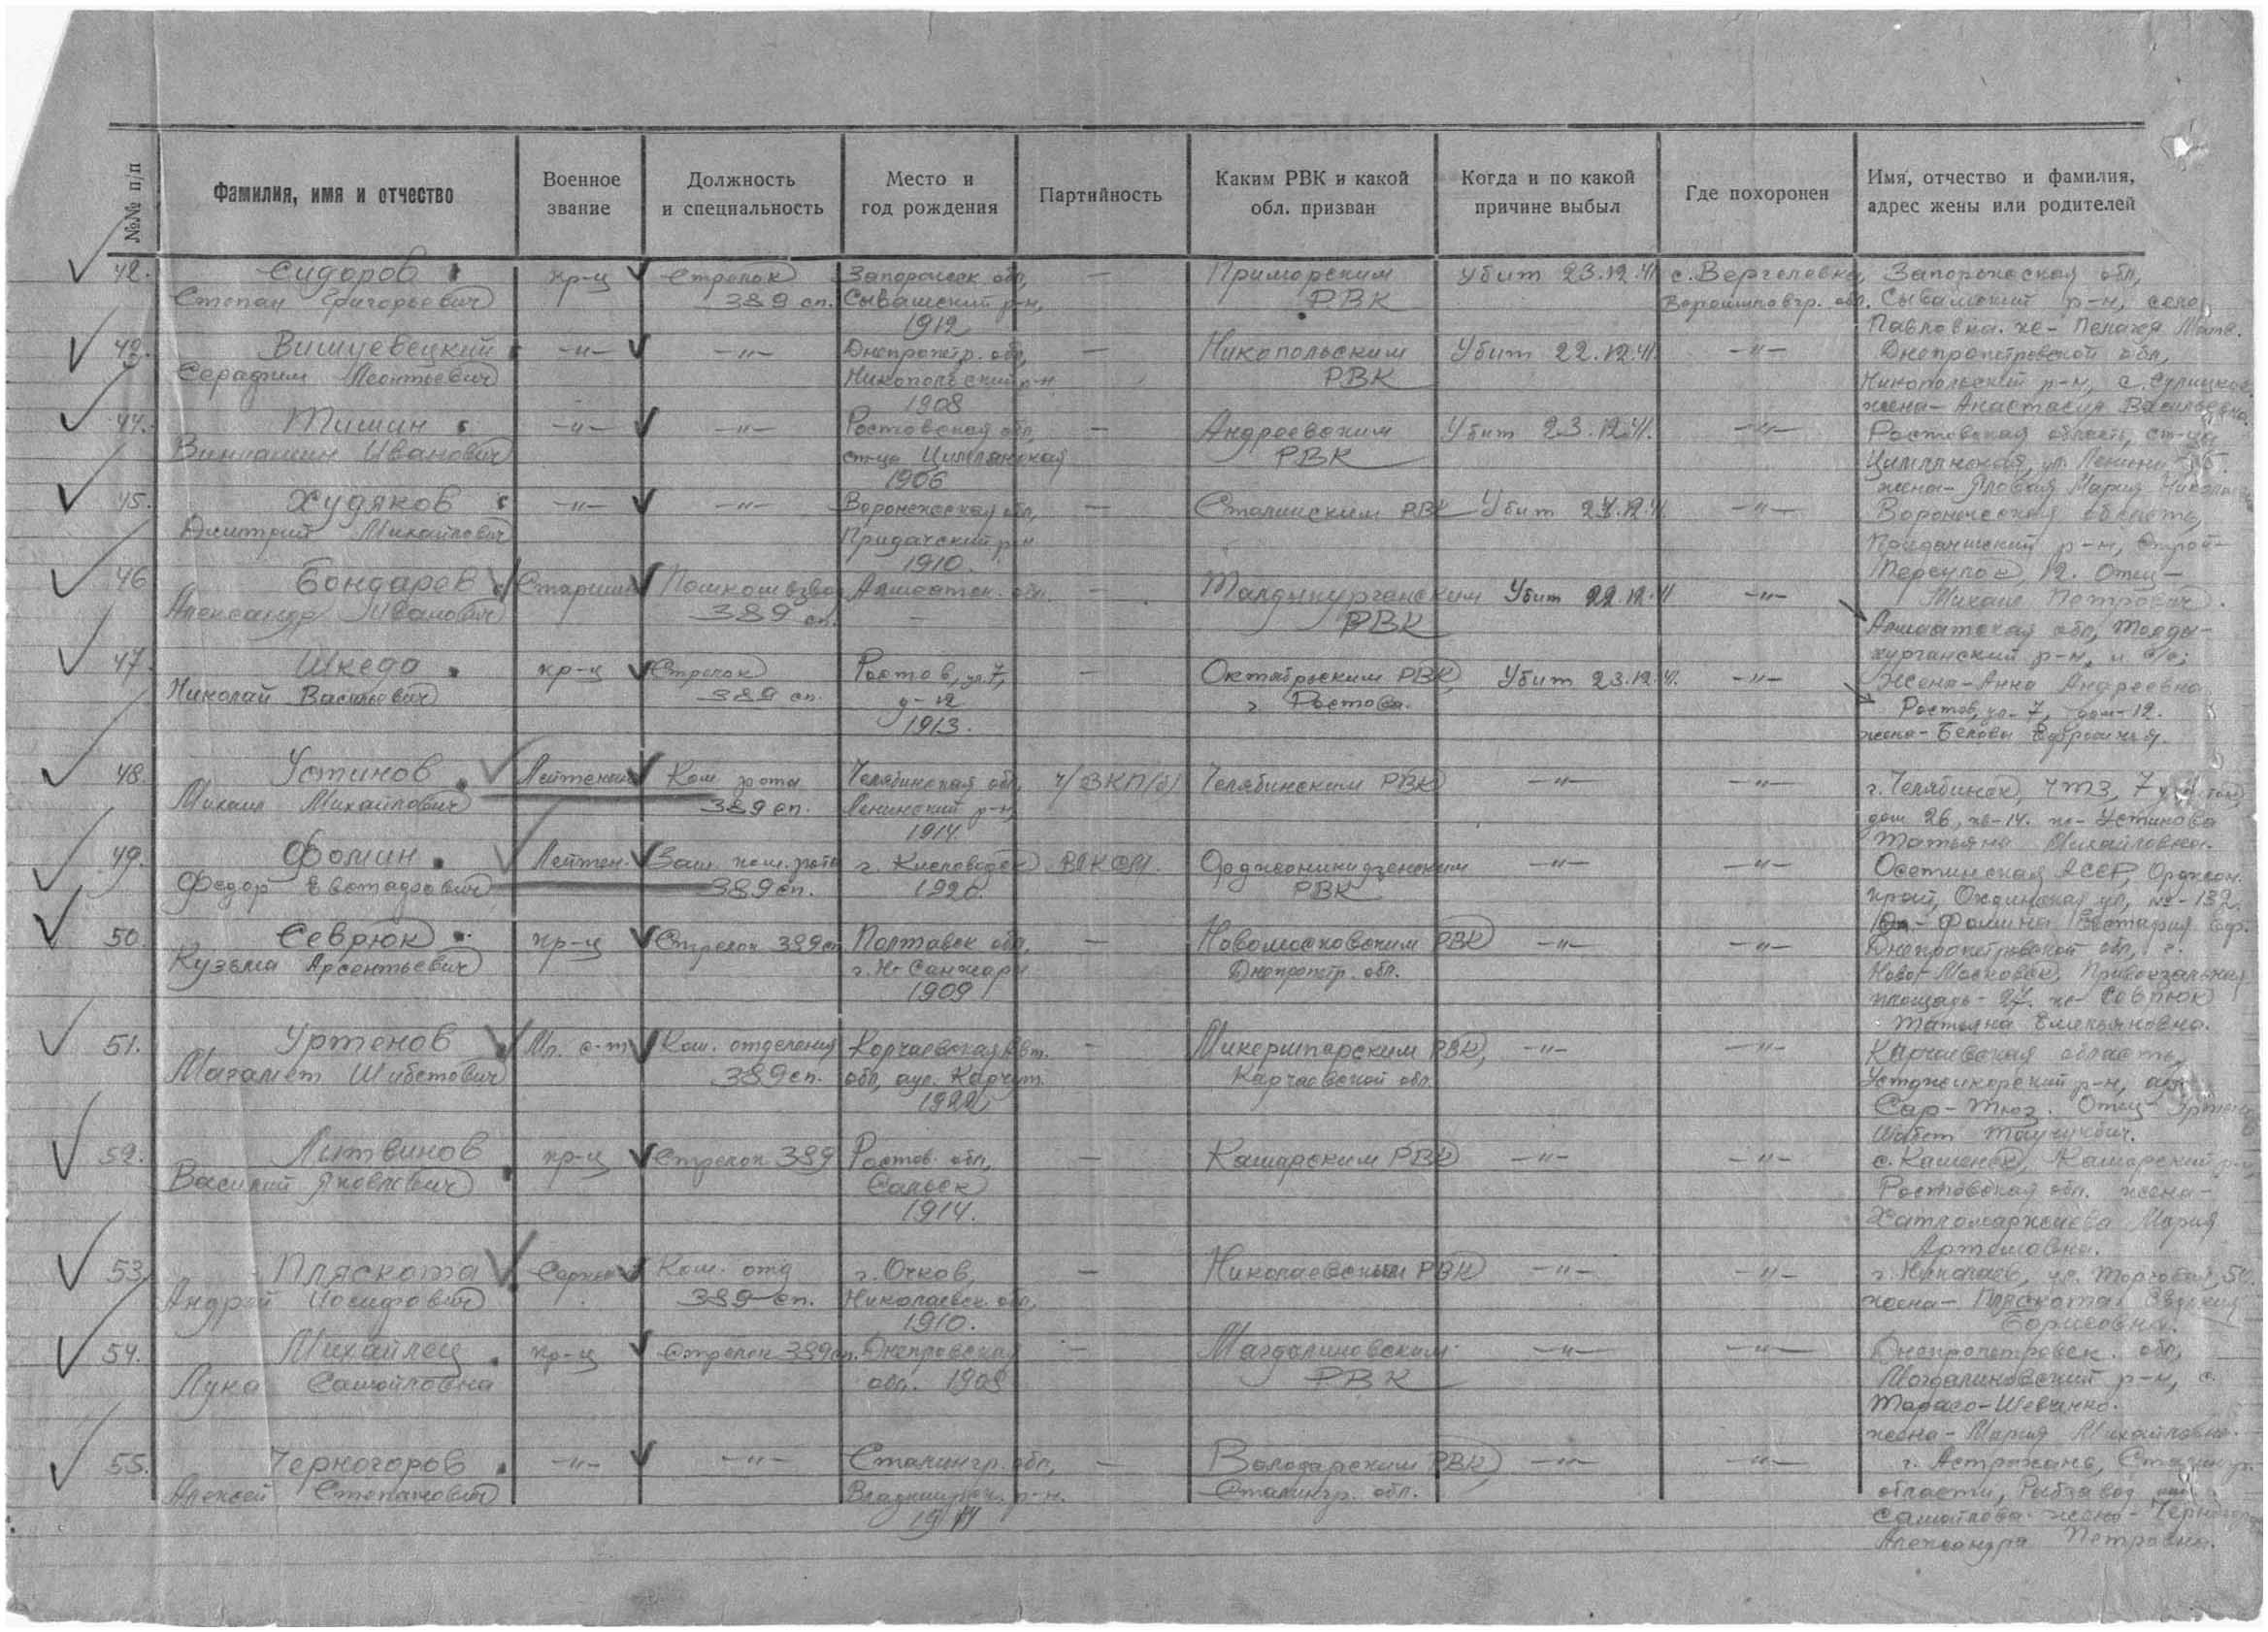 №№ п/п
Фамилия, имя и отчество
Военное звание
Должность и специальность
Место и год рождения
Партийность
Каким РВК и какой обл. призван
Когда и по какой причине выбыл
Где похоронен
Имя, отчество и фамилия, адрес жены или родителей
42. Сидоров кр-ц Стрелок Запорожск обл, — Приморским Убит 23.12.41 с. Вергелевка, Запорожская обл,
Степан Григорьевич 389 сп. Сывашский р-н, РВК Ворошиловгр. обл. Сывашский р-н, село
1912 Павловка. же- Пелагея Матв.
43. Вишневецкий -"- -"- Днепропетр. обл, — Никопольским Убит 22.12.41. -"- Днепропетровской обл,
Серафим Леонтьевич Никопольский р-н РВК Никопольский р-н, с.
1908 жена- Анастасия Васильевна.
44. Тишин -"- -"- Ростовская обл, — Андреевским Убит 23.12.41. -"- Ростовская область, ст-ца
Вениамин Иванович ст-ца Цимлянская РВК Цимлянская, ул. Ленина
1906 жена- Мария
45. Худяков -"- -"- Воронежская обл, — Сталинским РВК Убит -"- Воронежская область,
Дмитрий Михайлович Придачский р-н р-н,
1910. 12. Отец-
Михаил Петрович.
46 Бондарев Старшина Помкомвзво Алмаатск. обл. — Талдыкурганским Убит 22.12.41 -"-
Александр Иванович 389 сп. — РВК Алмаатская обл, Талды-
курганский р-н,
47. Шкеда кр-ц Стрелок Ростов, ул. 7, — Октябрьским РВК, Убит 23.12.41. -"- Жена-Анна Андреевна
Николай Васильевич 389 сп. д-12 г Ростова. Ростов, ул-7, дом-12.
1913. жена- Белова
48. Устинов Лейтенант Ком. рота Челябинская обл, ч/ВКП/б/ Челябинским РВК -"- -"- г. Челябинск, ЧТЗ, 7
Михаил Михайлович 389 сп. Ленинский р-н, дом 26, кв-14. же- Устинова
1914. Татьяна Михайловна.
49. Фомин Лейтен. Зам. ком. рота г. Кисловодск ВЛКСМ. Орджоникидзевским -"- -"- Осетинская АССР, Орджон.
Федор 389 сп. 1920. РВК край, ул, №-132.
Фомина
50. Севрюк кр-ц Стрелок 389сп Полтавск обл, — Новомосковским РВК -"- -"- Днепропетровской обл, г.
Кузьма Арсентьевич г. Н-Санжары Днепропетр. обл. Ново-Московск, Привокзальная
1909 площадь- 27. же- Севрюк
Татьяна Емельяновна.
51. Уртенов Мл. с-т Ком. отделения Карчаевская Авт. — РВК, -"- -"- Карчаевская область,
Магамет 389 сп. обл, аул. Карчут. Карчаевской обл. р-н,
1922 Отец
52. Литвинов кр-ц Стрелок 389 Ростов. обл, — Кашарским РВК -"- -"- с. Кашарский р-н,
Василий Яковлевич Сальск Ростовская обл. жена-
1914. Мария
Артемовна.
53, Пляскота Сержан Ком. отд г. Очков, — Николаевским РВК -"- -"- г. Николаев, ул. Торговая,
Андрей Иосифович 389 сп. Николаевск. обл, жена- Пляскота
1910. Борисовна.
54. Михайлец кр-ц Стрелок 389сп. Днепровская — Магдалиновским -"- -"- Днепропетровск. обл,
Лука Самойловна обл. 1908 РВК Магдалиновский р-н, с.
Тарасо-Шевченко.
жена- Мария Михайловна.
55. Черногоров -"- -"- Сталингр. обл, — Володарским РВК, -"- -"- г. Астрахань, Сталингр.
Алексей Степанович р-н. Сталингр. обл. области, Рыбзавод
Самойлова- жена-
Александра Петровна.